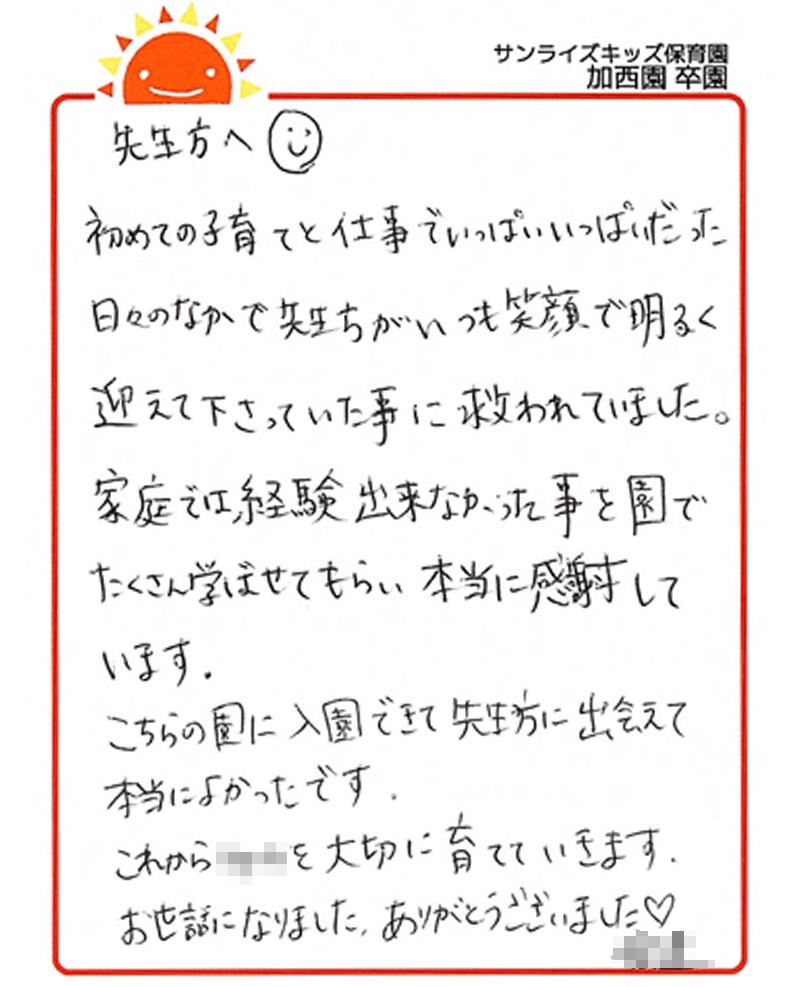 サンライズキッズ保育園
加西園 卒園
先生方へ
初めての子育てと仕事でいっぱいいっぱいだった
日々のなかで先生ちがいつも笑顔で明るく
迎えて下さっていた事に救われていました。
家庭では経験出来なかった事を園で
たくさん学ばせてもらい本当に感謝して
います.
こちらの園に入園できて先生方に出会えて
本当によかったです.
これから を大切に育てていきます.
お世話になりました, ありがとうございました♡